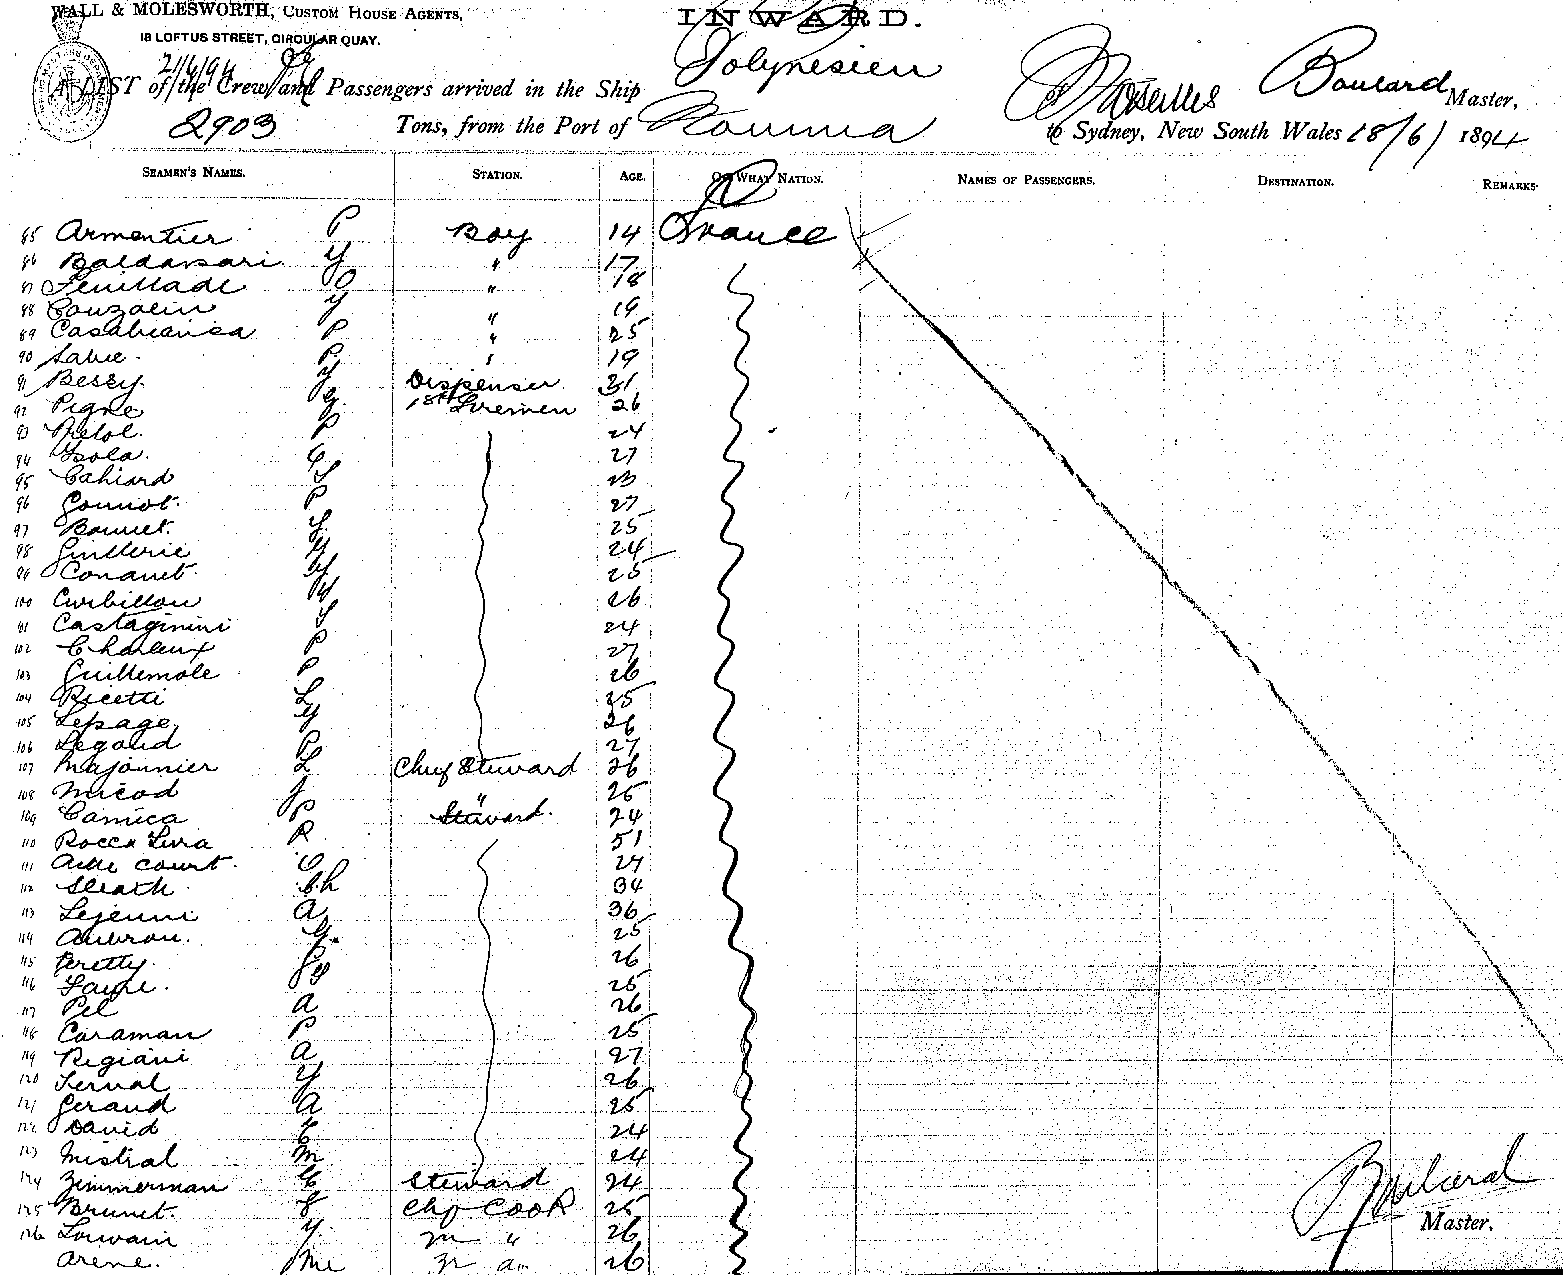 WALL & MOLESWORTH, CUSTOM HOUSE AGENTS,
18 LOFTUS STREET, CIRCULAR QUAY.
INWARD.
A LIST of the Crew and Passengers arrived in the Ship Polynesien of Marseilles Boulard Master,
2903 Tons, from the Port of Noumea to Sydney, New South Wales 18/6/1894
SEAMEN'S NAMES. STATION. AGE. OF WHAT NATION. NAMES OF PASSENGERS. DESTINATION. REMARKS.
85 Armentier P Boy 14 France
86 Baldassari Y " 17
87 Feuillade O " 18
88 Couzolin Y " 19
89 Casabianca P " 25
90 Labie P " 19
91 Bessy Y Dispenser 31
92 Pigne G. Firemen 26
93 Pretol. P 24
94 Isola. C 27
95 Cahiard S 23
96 Gounot. P 27
97 Bonnet. 25
98 Guillerie Y 24
99 Conanet Y 25
100 Curbillon 26
Castaginini S 24
102 Charleux P 27
103 Guillemole P 26
104 Ricetti L 25
105 Lepage Y 26
106 Legoud P 27
107 Majonnier L Chief Steward 26
108 Micod J " 25
109 Camica P Steward. 24
110 Rocca Serra R 51
111 court. C 27
112 Sleath Ch 34
113 Lejeune A 36
114 Aubron. Y. 25
115 Peretty 26
116 Favre. 25
117 Pel A 26
118 Caraman P 25
119 Regiani A 27
120 Y 26
121 Geraud A 25
122 David E 24
123 Mistral M 24
124 Zimmerman G Steward 24
125 Brunet. Cook 25
126 Louvain Y. " 26
Arene. 26
Boulard
Master.